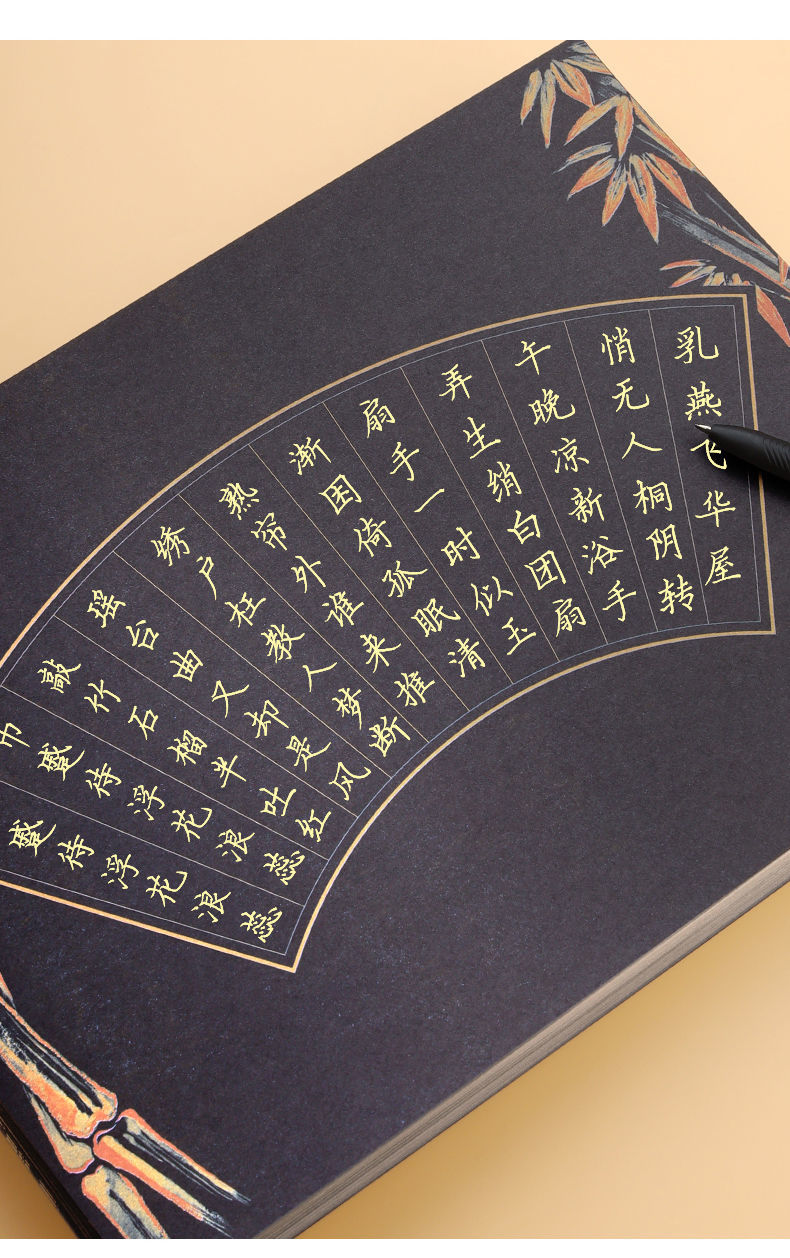 乳燕飞华屋
悄无人桐阴转
午晚凉新浴手
弄生绡白团扇
扇手一时似玉
渐困倚孤眠清
熟帘外谁来推
绣户枉教人梦断
瑶台曲又却是风
敲竹石榴半吐红
巾蹙待浮花浪蕊
蹙待浮花浪蕊